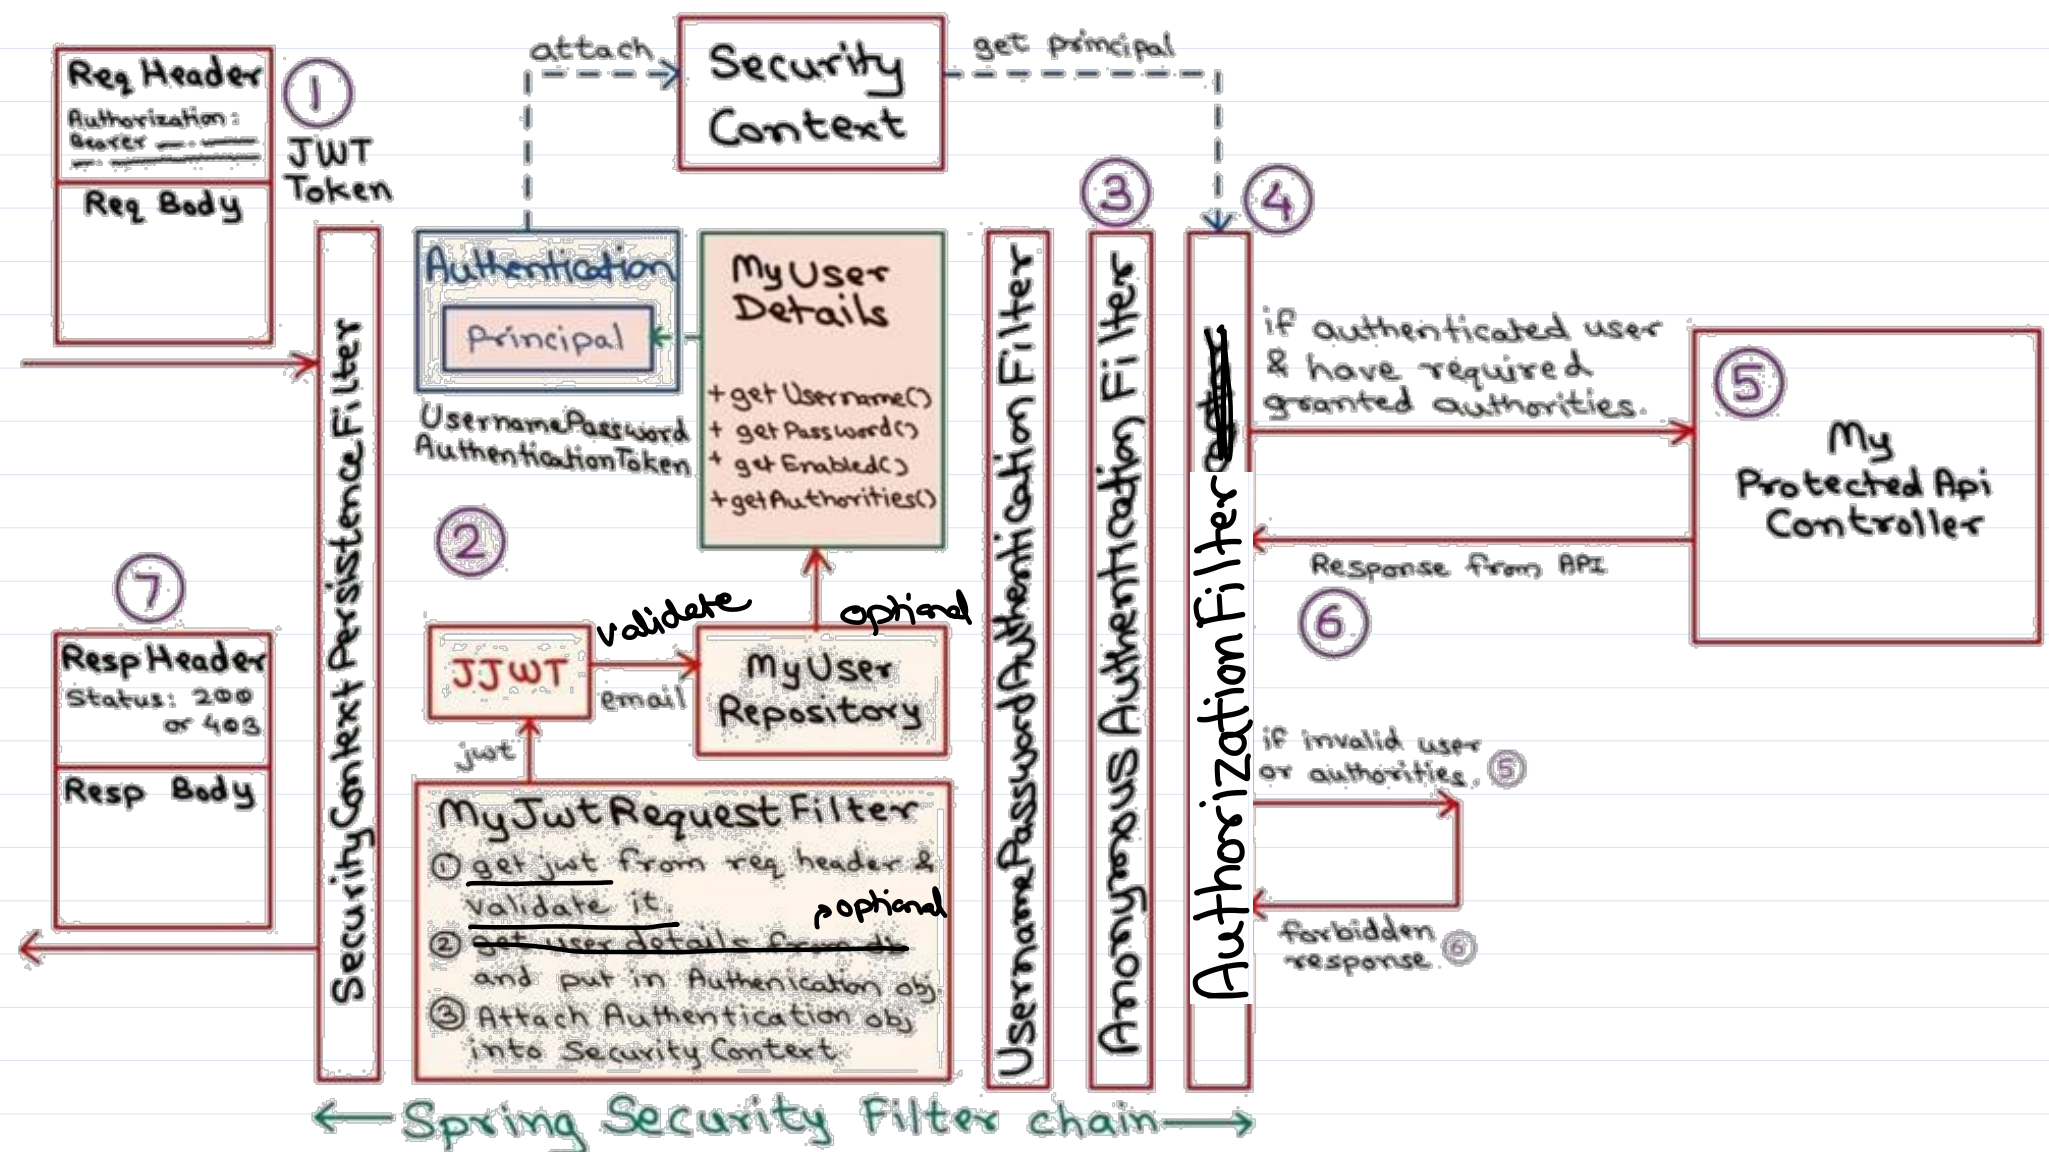 Req Header
Authorization:
Bearer
Req Body
1
JWT
Token
attach
Security
Context
get principal
SecurityContextPersistenceFilter
Authentication
Principal
UsernamePassword
AuthenticationToken
My User
Details
+ getUsername()
+ getPassword()
+ getEnabled()
+ getAuthorities()
2
JJWT
validate
email
optional
My User
Repository
jwt
My Jwt Request Filter
① get jwt from req header &
validate it
optional
② get user details from db
and put in Authenication obj.
③ Attach Authentication obj
into Security Context
UsernamePasswordAuthentication Filter
3
Anonymous Authentication Filter
4
AuthorizationFilter
if authenticated user
& have required
granted authorities.
5
My
Protected Api
Controller
Response from API
6
if invalid user
or authorities. 5
forbidden
response. 6
7
Resp Header
Status: 200
or 403
Resp Body
Spring Security Filter chain